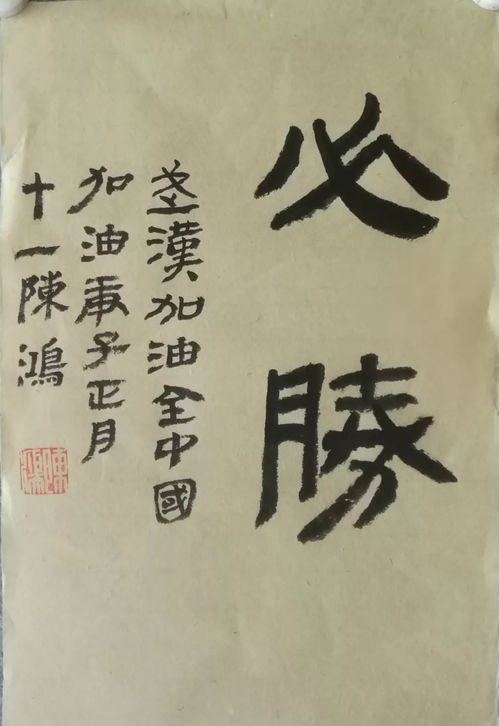 必勝
武漢加油全中國
加油庚子正月
十一陳鴻